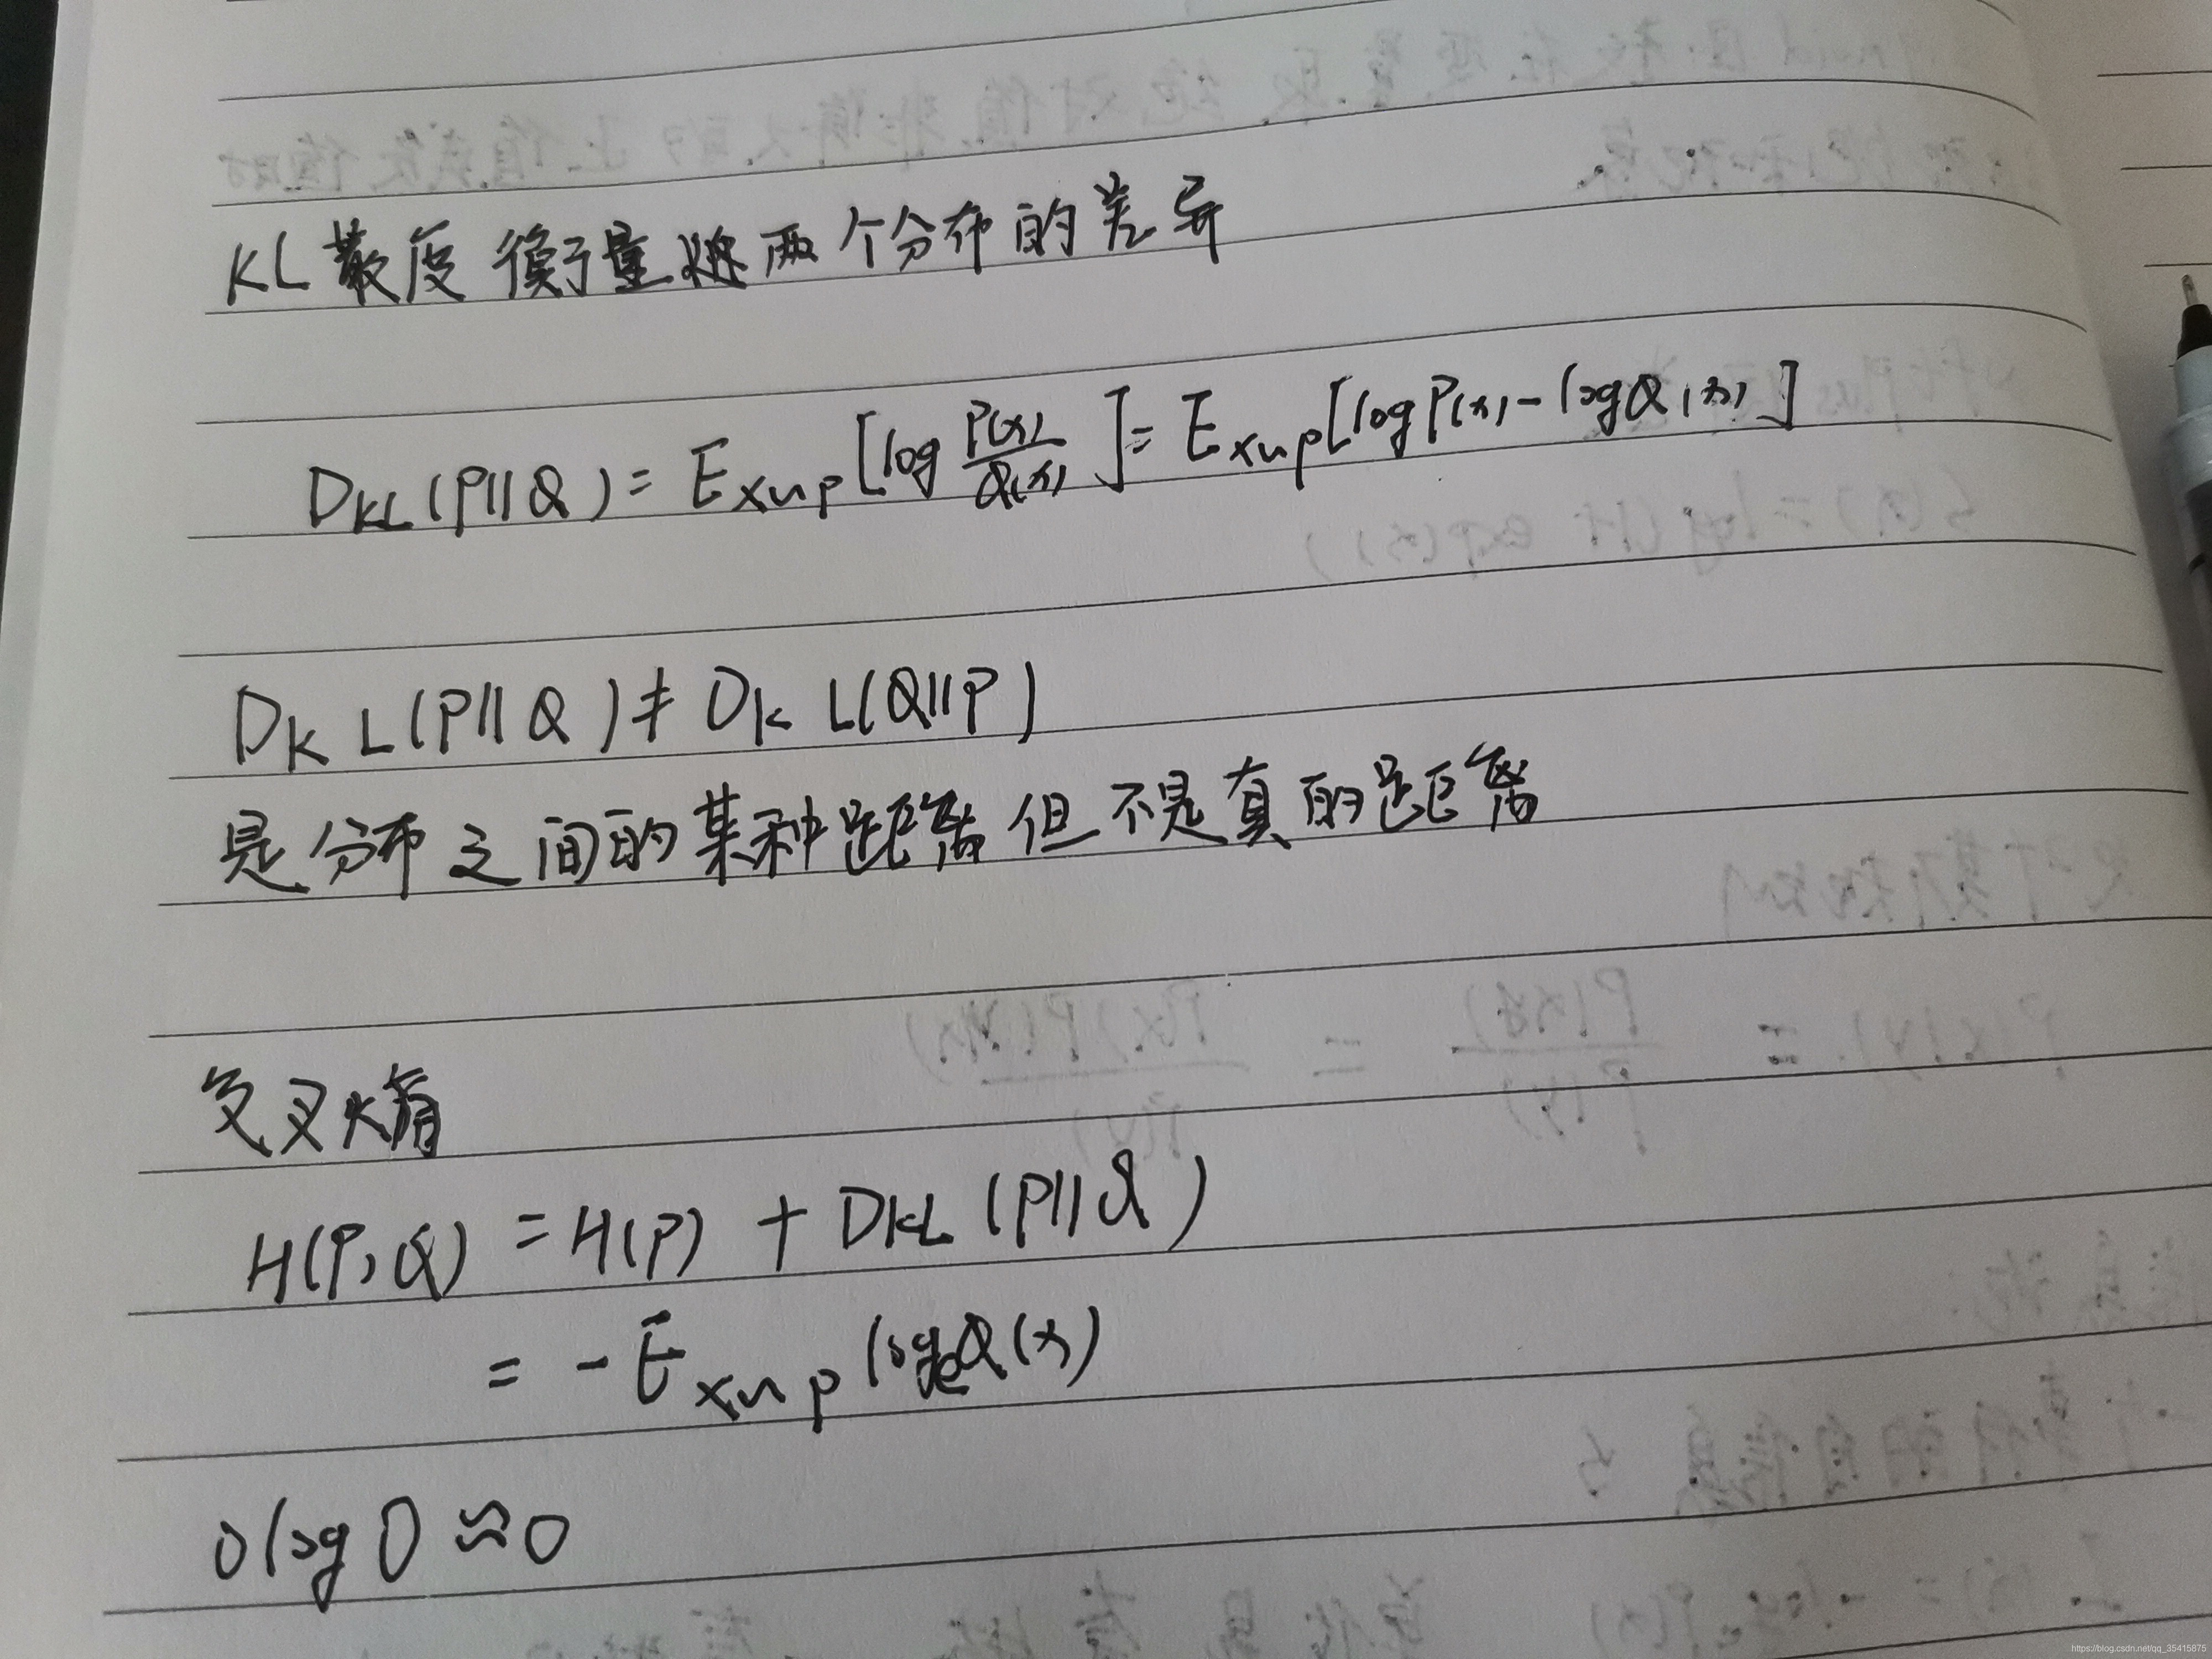 KL 散度 衡量 两个分布的差异
D_{KL}(P||Q) = E_{x~P}[log P(x)/Q(x)] = E_{x~P}[log P(x) - log Q(x)]
D_K L(P||Q) ≠ D_K L(Q||P)
是分布之间的某种距离但不是真的距离
交叉熵
H(P,Q) = H(P) + D_{KL}(P||Q)
= - E_{x~P} log Q(x)
0 log 0 ≈ 0
https://blog.csdn.net/qq_35415875